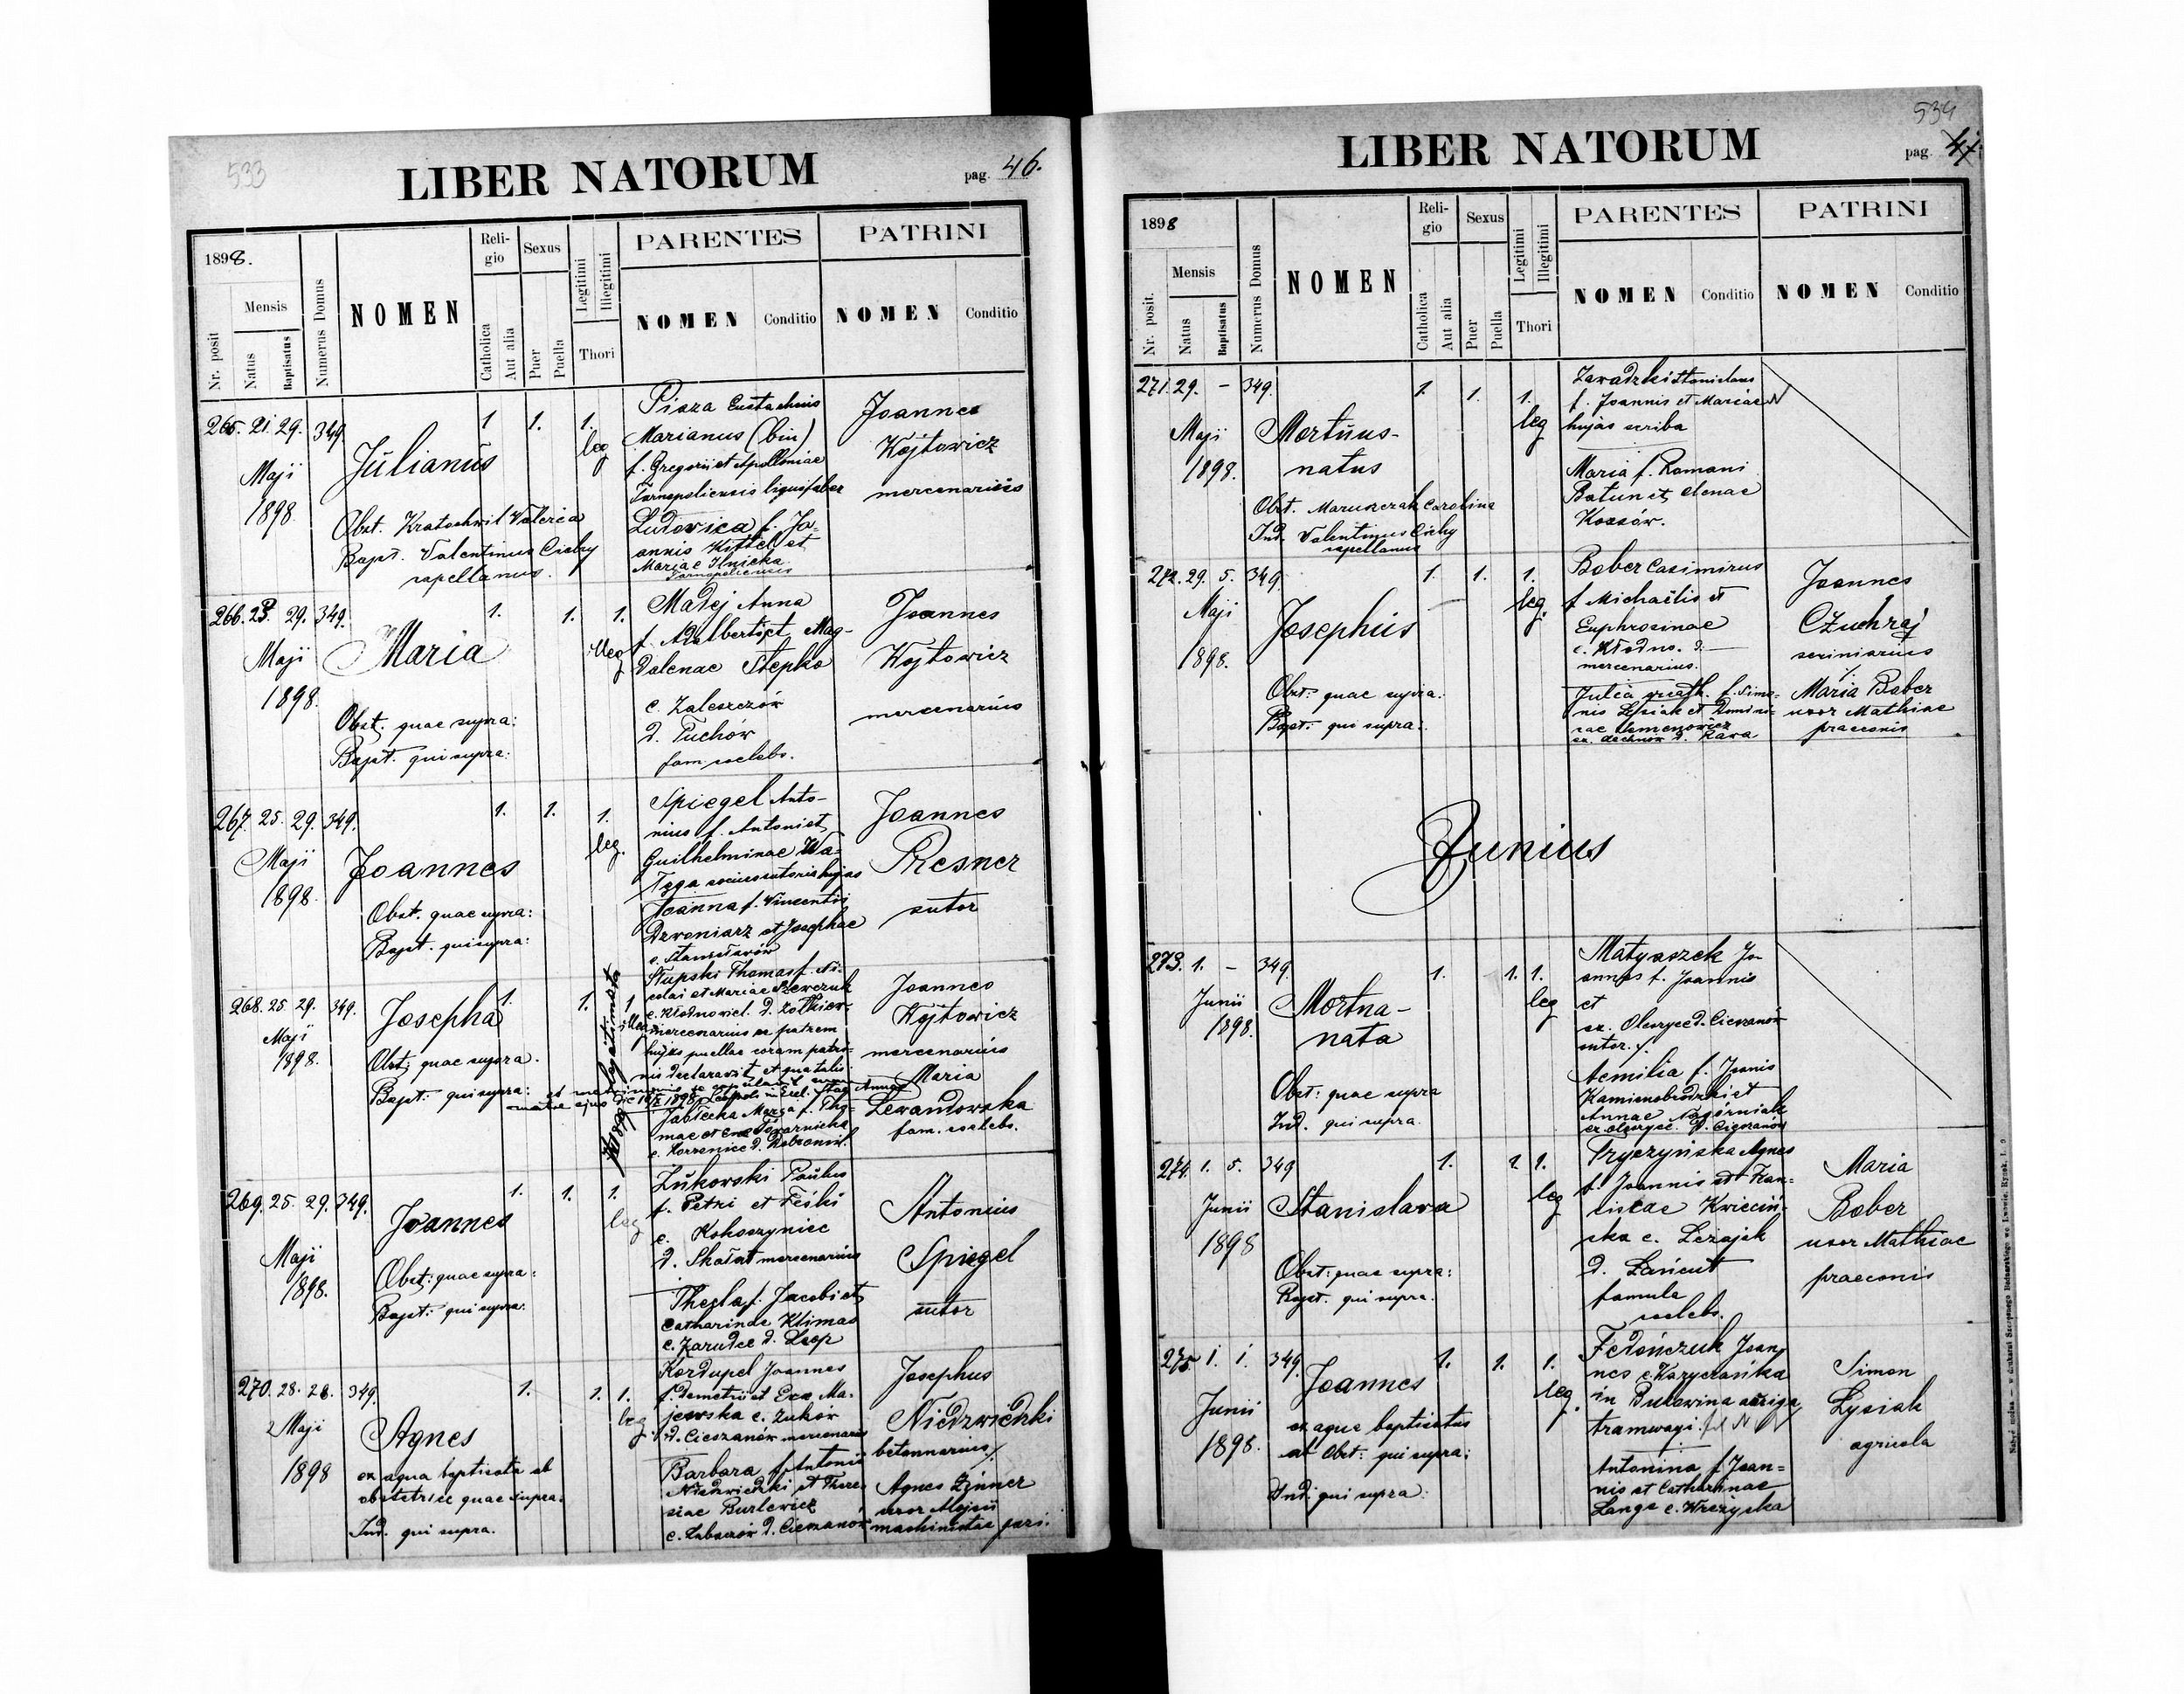 533
LIBER NATORUM
pag. 46.
1898.
Nr. posit
Mensis
Natus
Baptisatus
Numerus Domus
NOMEN
Religio
Catholica
Aut alia
Sexus
Puer
Puella
Legitimi
Illegitimi
Thori
PARENTES
NOMEN
Conditio
PATRINI
NOMEN
Conditio
265. 21. 29. 349.
Maji
1898.
Julianus
Obst. Kratochwil Valeria
Bapt. Valentinus Cichy
capellanus.
1 1. 1.
leg
Piaza Eustachius
Marianus (bin)
f. Gregorii et Apolloniae
Tarnopoliensis lignifaber
Ludovica f. Jo-
annis Kittel et
Mariae Ilnicka
Tarnopoliensis
Joannes
Kojtowicz
mercenarius
266. 23. 29. 349.
Maji
1898.
Maria
Obst. quae supra:
Bapt. qui supra:
1. 1. 1.
illeg
Madej Anna
f. Adalberti et Mag-
dalenae Stepko
e. Zaleszczów
d. Tuchów
fam. coelebs.
Joannes
Kojtowicz
mercenarius
267. 25. 29. 349.
Maji
1898.
Joannes
Obst. quae supra:
Bapt. qui supra:
1. 1. 1.
leg.
Spiegel Anto-
nius f. Antoni et
Guilhelminae
socius sutoris hujas
Joanna f. Vincentii
Dzwoniarz et Josephae
e. Stanisławów
Joannes
Resner
sutor
268. 25. 29. 349.
Maji
1898.
Josepha
Obst. quae supra.
Bapt. qui supra:
1. 1. 1
illeg
legitimata
Słupski Thomas f. Ni-
colai et Mariae Szewczuk
mercenarius se patrem
hujus puellae coram patri-
nis declaravit et qua talis
Joannes
Kojtowicz
mercenarius
Maria
Lewandowska
fam. coelebs.
269. 25. 29. 349.
Maji
1898.
Joannes
Obst: quae supra:
Bapt: qui supra:
1. 1. 1.
leg
Żukowski Paulus
f. Petri et
e. Kokoszyniec
d. Skałat mercenarius
Thegla f. Jacobi et
Catharinae Klimas
e. Zarudce d. Leop
Antonius
Spiegel
sutor
270. 28. 28. 349.
Maji
1898
Agnes
ex aqua baptisata ab
obstetrice quae supra.
Ind. qui supra.
1. 1. 1.
leg
Kordupel Joannes
f. Demetrii et Eva Ma-
jewska e. Żuków
d. Cieszanów mercenarius
Barbara f. Antonii
Niedzwiedzki et There-
siae Burlewicz
e. Lubaczów d. Cieszanów
Josephus
Niedzwiedzki
betonnarius
Agnes Zinner
uxor
machinistae
534
LIBER NATORUM
pag. 47.
1898
Nr. posit.
Mensis
Natus
Baptisatus
Numerus Domus
NOMEN
Religio
Catholica
Aut alia
Sexus
Puer
Puella
Legitimi
Illegitimi
Thori
PARENTES
NOMEN
Conditio
PATRINI
NOMEN
Conditio
271. 29. - 349.
Maji
1898.
Mortuus-
natus
Obst. Maruszczak Carolina
Ind. Valentinus Cichy
capellanus
1. 1. 1.
leg
Zawadzki Stanislaus
f. Joannis et Mariae N
hujas scriba
Maria f. Romani
Batun et Elenae
Kossów.
272. 29. 5. 349.
Maji
1898.
Josephus
Obst: quae supra:
Bapt: qui supra:
1. 1. 1.
leg.
Bober Casimirus
f Michaelis et
Euphrosinae
e. Kłodno. d.
mercenarius.
Julia f. Simo-
nis Lysiak et Domini-
cae Semenowicz
d. Rawa
Joannes
Czuchraj
scriniarius
Maria Bober
uxor Mathiae
praeconis
Junius
273. 1. - 349.
Junii
1898.
Mortna-
nata
Obst: quae supra
Ind. qui supra.
1. 1. 1.
leg
Matyaszek Jo-
annes f. Joannis
et
ex. Oleszyce d. Cieszanów
sutor.
Aemilia f. Joannis
Kamienobrodzki et
Annae Nagórniak
ex Oleszyce d. Cieszanów
274. 1. 5. 349
Junii
1898
Stanislava
Obst: quae supra:
Bapt. qui supra.
1. 1. 1.
leg
Pryczyńska Agnes
f. Joannis et Fran-
ciscae Kwieciń-
ska e. Leżajsk
d. Łańcut
famula
coelebs.
Maria
Bober
uxor Mathiae
praeconis
275 1. 1. 349.
Junii
1898.
Joannes
ex aqua baptisatus
ab Obst: qui supra:
Ind: qui supra:
1. 1. 1.
leg.
Fedończuk Joan-
nes
in Bukowina auriga
tramwagi
Antonina f. Joan-
nis et Catharinae
Lange
Simon
Lysiak
agricola